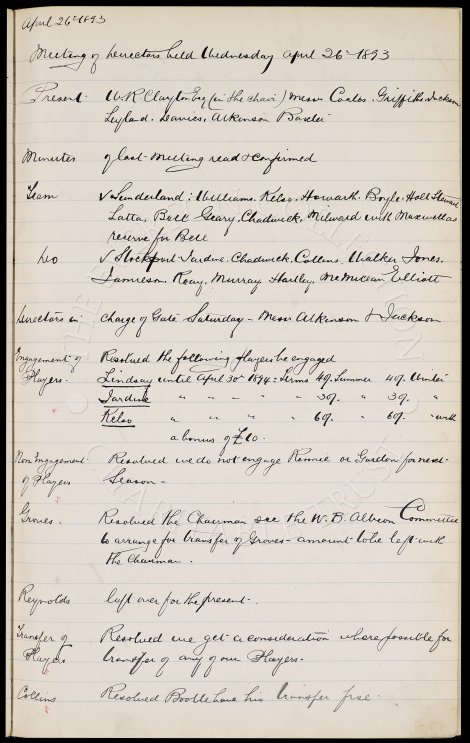 April 26th 1893
Meeting of Directors held Wednesday April 26th 1893
Present W. R. Clayton Esq (in the chair) Messrs Coates, Griffiths, Jackson
Leyland, Davies, Atkinson Baxter
Minutes of last Meeting read & confirmed
Team v Sunderland: Williams, Kelso, Howarth, Boyle, Holt Stewart
Latta, Bell Geary, Chadwick, Milward with Maxwell as
reserve for Bell
Do v Stockport - Jardine, Chadwick, Collins, Walker Jones,
Jamieson, Reay, Murray Hartley, McMillan, Elliott
Directors in charge of Gate Saturday - Messrs Atkinson & Jackson
Engagement of Players. Resolved the following Players be engaged
Lindsay until April 30th 1894: Terms 40/. Summer 40/. Winter
Jardine " " " " " 30/. " 30/. "
Kelso " " " " " 60/. " 60/. " with
a bonus of £10.
Non Engagement of Players Resolved we do not engage Rennie or Gordon for next
Season -
Groves. Resolved the Chairman see the W. B. Albion Committee
to arrange for transfer of Groves - amount to be left with
the Chairman.
Reynolds left over for the present -.
Transfer of Players Resolved we get a consideration where possible for
transfer of any of our Players.
Collins Resolved Bootle have his transfer free.